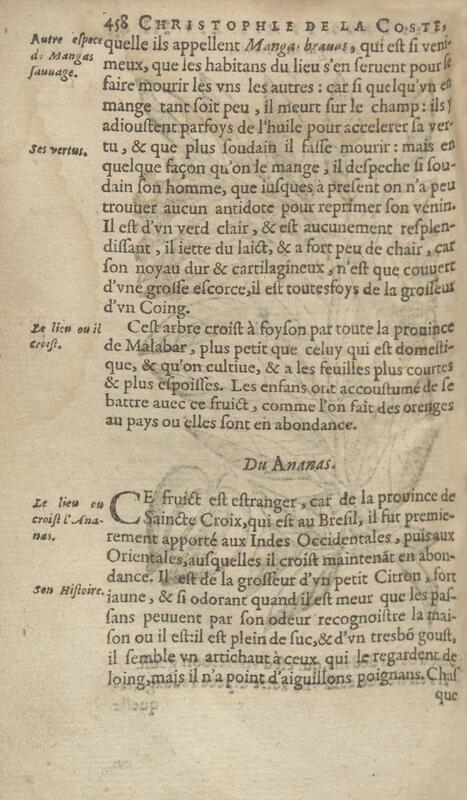 458 CHRISTOPHLE DE LA COSTE,
Autre espece
de Mangas
sauuage.
quelle ils appellent Mangas brauas, qui est si veni-
meux, que les habitans du lieu s'en seruent pour se
faire mourir les vns les autres: car si quelqu'vn en
mange tant soit peu, il meurt sur le champ: ils y
adioustent parfoys de l'huile pour accelerer sa ver-
Ses vertus.
tu, & que plus soudain il fasse mourir: mais en
quelque façon qu'on le mange, il despeche si sou-
dain son homme, que iusques à present on n'a peu
trouuer aucun antidote pour reprimer son venin.
Il est d'vn verd clair, & est aucunement resplen-
dissant, il iette du laict, & a fort peu de chair, car
son noyau dur & cartilagineux, n'est que couuert
d'vne grosse escorce, il est toutesfoys de la grosseur
d'vn Coing.
Le lieu ou il
croist.
Cest arbre croist à foyson par toute la prouince
de Malabar, plus petit que celuy qui est domesti-
que, & qu'on cultiue, & a les feuilles plus courtes
& plus espoisses. Les enfans ont accoustumé de se
battre auec ce fruict, comme l'on fait des orenges
au pays ou elles sont en abondance.
Du Ananas.
Le lieu ou
croist l'Ana-
nas.
CE fruict est estranger, car de la prouince de
Saincte Croix, qui est au Bresil, il fut premie-
rement apporté aux Indes Occidentales, puis aux
Orientales, ausquelles il croist maintenāt en abon-
dance. Il est de la grosseur d'vn petit Citron, fort
Son Histoire.
iaune, & si odorant quand il est meur que les pas-
sans peuuent par son odeur recognoistre la mai-
son ou il est: il est plein de suc, & d'vn tresbō goust,
il semble vn artichaut à ceux qui le regardent de
loing, mais il n'a point d'aiguillons poignans. Chas
que